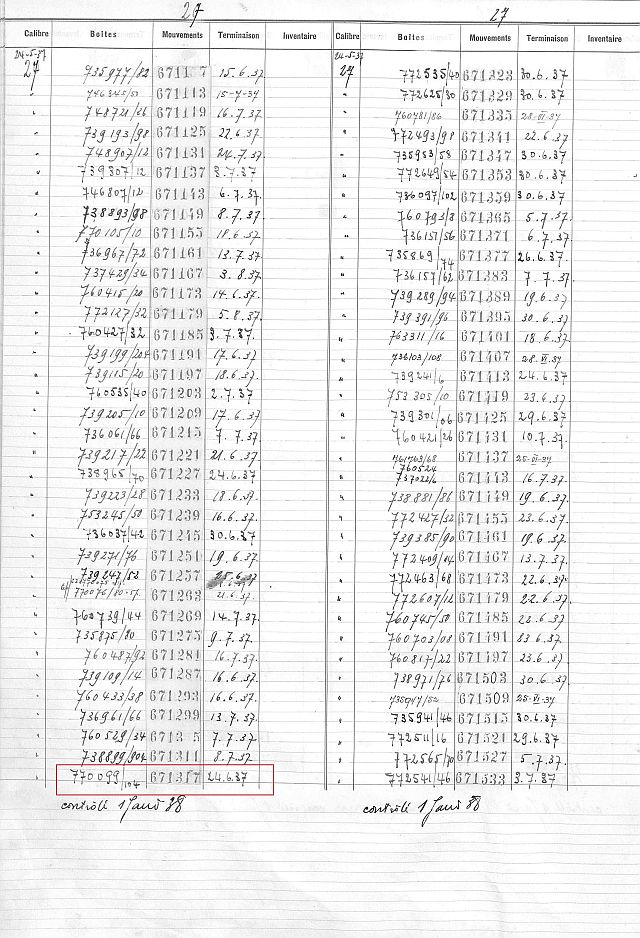 27 27
Calibre Boîtes Mouvements Terminaison Inventaire Calibre Boîtes Mouvements Terminaison Inventaire
24-5-37 24-5-37
27 735977/82 15.6.37 27 772535/40 671323 30.6.37
" 746345/51 671113 15-7-37 " 772625/30 671329 30.6.37
" 748721/26 671119 16.7.37 " 760781/86 671335 28-VI-37
" 739193/98 671125 22.6.37 " 772493/98 671341 22.6.37
" 748907/12 671131 24.7.37 " 735953/58 671347 30.6.37
" 739307/12 671137 3.7.37 " 772649/54 671353 30.6.37
" 746807/12 671143 6.7.37 " 736097/102 671359 30.6.37
" 738893/98 671149 8.7.37 " 760793/8 671365 5.7.37
" 770105/10 671155 18.6.37 " 736151/56 671371 6.7.37
" 736967/72 671161 13.7.37 " 735869/74 671377 26.6.37
" 737429/34 671167 3.8.37 " 736157/62 671383 7.7.37
" 760415/20 671173 14.6.37 " 739289/94 671389 19.6.37
" 772127/32 671179 5.8.37 " 739391/96 671395 30.6.37
" 760427/32 671185 3.7.37 " 763311/16 671401 18.6.37
" 739199/204 671191 17.6.37 " 736103/108 671407 28.VI-37
" 739115/20 671197 18.6.37 " 739241/6 671413 24.6.37
" 760535/40 671203 2.7.37 " 753305/10 671419 23.6.37
" 739205/10 671209 17.6.37 " 739301/06 671425 29.6.37
" 736061/66 671215 7.7.37 " 760421/26 671431 10.7.37
" 739217/22 671221 21.6.37 " 761763/68 671437 25-VI-37
" 738965/70 671227 24.6.37 " 760524 737022/6 671443 16.7.37
" 739223/28 671233 18.6.37 " 738881/86 671449 19.6.37
" 753245/50 671239 16.6.37 " 772427/32 671455 23.6.37
" 736037/42 671245 30.6.37 " 739385/90 671461 19.6.37
" 739271/76 671251 19.6.37 " 772409/14 671467 13.7.37
" 739247/52 671257 25.6.37 " 772463/68 671473 22.6.37
" 671263 21.6.37 " 772607/12 671479 22.6.37
" 760739/44 671269 14.7.37 " 760745/50 671485 22.6.37
" 735875/80 671275 9.7.37 " 760703/08 671491 23.6.37
" 760487/92 671281 16.7.37 " 760817/22 671497 23.6.37
" 739109/14 671287 16.6.37 " 738971/76 671503 30.6.37
" 760433/38 671293 16.6.37 " 735947/52 671509 25-VI-37
" 736961/66 671299 13.7.37 " 735941/46 671515 30.6.37
" 760529/34 7.7.37 " 772511/16 671521 29.6.37
" 738899/904 671311 8.7.37 " 772565/70 671527 5.7.37
" 770099/104 671317 24.6.37 " 772541/46 671533 3.7.37
contrôlé 1 Janv 38 contrôlé 1 Janv 38